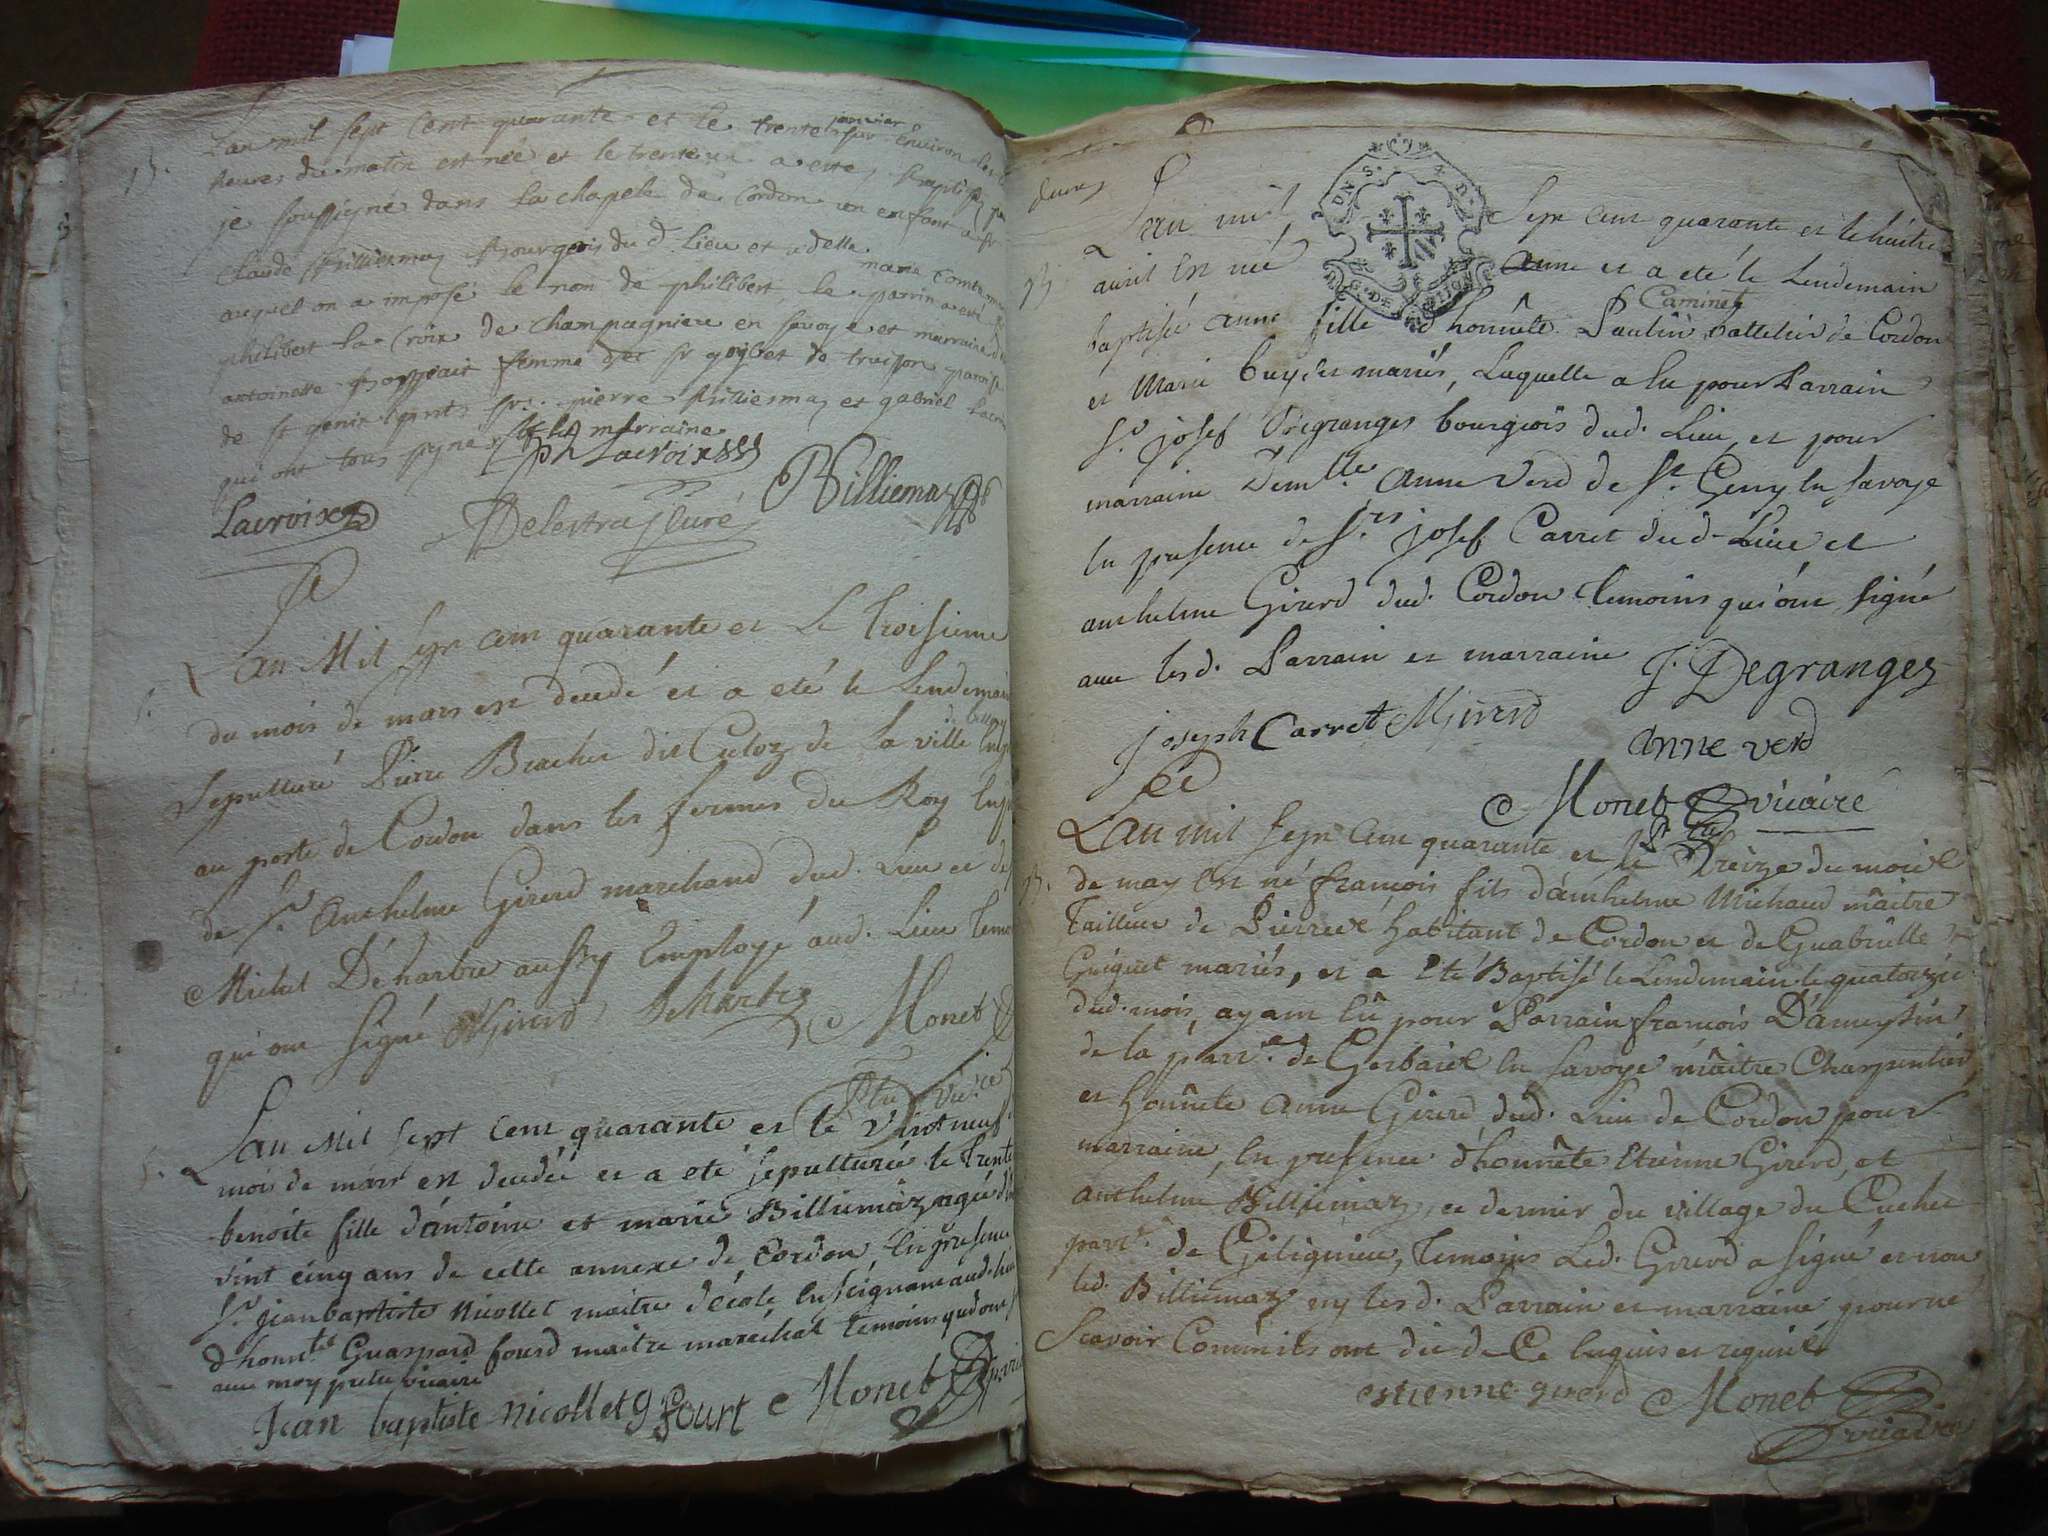 janvier
L'an mil sept cent quarante et le trente sur environ les
heures du matin est née et le trente un a este baptisé par
je soussigné dans la chapele de Cordon un enfant a sr
Claude Billiemaz Bourgeois du d. Lieu et a delle marie
auquel on a imposé le nom de philibert le parrin a esté sr
philibert La Croix de Champagnieu en savoye et marraine
antoinette femme de sr de paroisse
de st genix presents srs. pierre Billiemaz et gabriel Lacroix
qui ont tous signe et la marraine
Ph Lacroix
Lacroix Delestra Curé Billiemaz
L'an Mil sept cent quarante et Le Troisieme
du mois de mars est decedé et a eté le Lendemain
de Belley
Sepulturé Pierre Bracher dit Culoz de La ville
au poste de Cordon dans les fermes du Roy
de Sr. Anthelme Girerd marchand dud. Lieu et de
Michel Déharbre aussy Employé aud. Lieu Temoins
qui ont signé AGirerd Deharbre Monet
Ptre Vic.re
L'an Mil sept cent quarante et le Vint neuf
mois de mars est decedée et a eté sepulturée le Trente
benoite fille d'antoine et marie Billiemaz agée d'
vint cinq ans de cette annexe de Cordon, En presence
Sr. jean baptiste Nicollet maitre d'école Enseignant aud. lieu
d'honnte. Guaspard fourd maitre maréchal temoins qui ont
avec moy pretre vicaire
Jean baptiste nicollet g fourt Monet
Deux
L'an mil Sept cent quarante et le huitre
avril Est née Anne et a eté le Lendemain
Caminet
baptisée anne fille d'honnête Paulin battelier de Cordon
et Marie buydet mariés, Laquelle a Eu pour Parrain
Sr. josef Degranges bourgeois dud. Lieu, et pour
marraine Demlle. Anne Verd de St. Geny En Savoye
En presence de Srs. josef Carret dud. Lieu et
anthelme Girerd dud. Cordon temoins qui ont signé
avec lesd. Parrain et marraine J. Degranges
joseph Carret AGirerd
anne verd
Monet vicaire
Ptre
L'an mil sept cent quarante et le Treize du mois
de may Est né françois fils d'anthelme Michaud maître
Tailleur de Pierre habitant de Cordon et de Guabrielle
Guiguet mariés, et a Eté Baptisé le Lendemain le quatorzie
dud. mois, ayant Eû pour Parrain françois D'ameysin
de la parre. de Gerbaix En Savoye maître Charpentier
et honnête Anne Girerd dud. Lieu de Cordon pour
marraine, En presence d'honnête Etienne Girerd, et
anthelme Billiemaz, ce dernier du village du Cuchet
parre. de Gélignieu, Temoins Led. Girerd a signé et non
led. Billiemaz ny lesd. Parrain et marraine pour ne
Scavoir Comm'ils ont dit de Ce Enquis et requis
estienne girerd Monet
vicaire